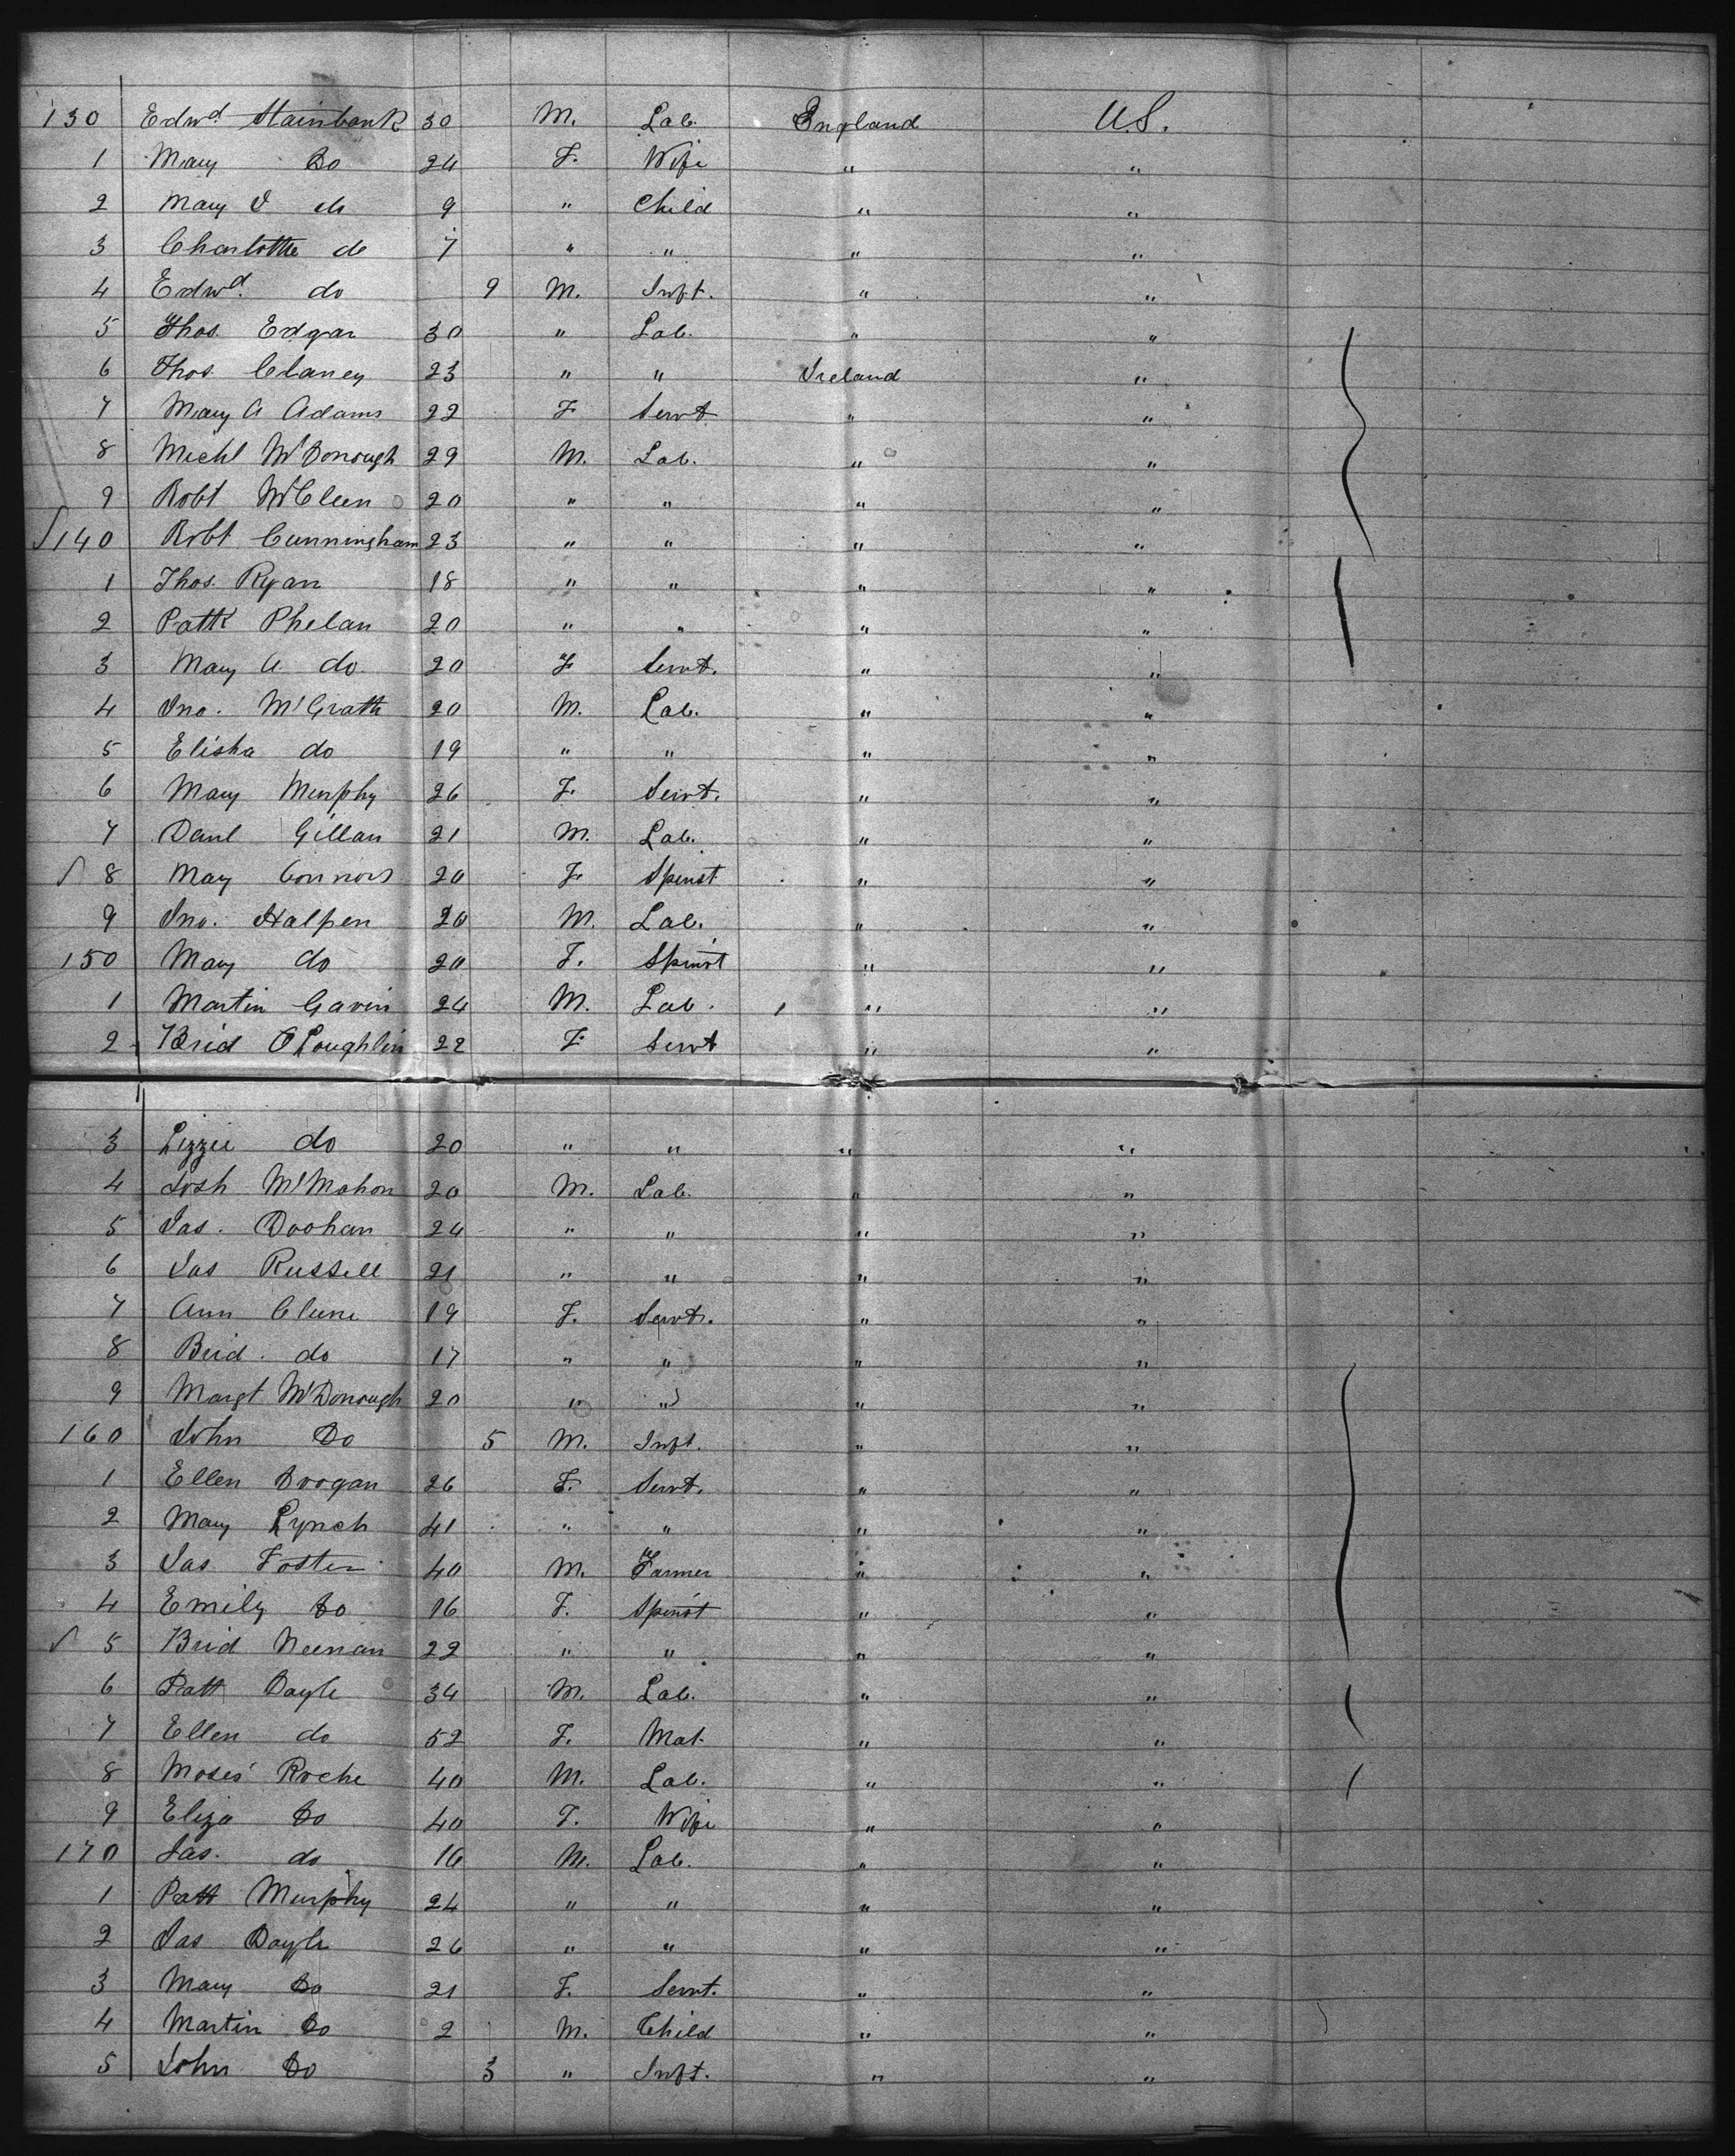 130 Edwd. Stainbank 30 M. Lab. England U.S.
1 Mary Do 24 F. Wife " "
2 Mary J do 9 " Child " "
3 Charlotte do 7 " " " "
4 Edwd. do 9 M. Inft. " "
5 Thos. Edgar 30 " Lab. " "
6 Thos. Clancy 23 " " Ireland "
7 Mary A Adams 22 F Servt " "
8 Michl McDonough 29 M. Lab. " "
9 Robt McCleen 20 " " " "
140 Robt Cunningham 23 " " " "
1 Thos. Ryan 18 " " " "
2 Pattk Phelan 20 " " " "
3 Mary A do 20 F Servt. " "
4 Jno. McGrath 20 M. Lab. " "
5 Elisha do 19 " " " "
6 Mary Murphy 26 F. Servt. " "
7 Danl Gillan 21 M. Lab. " "
8 Mary Connors 20 F. Spinst " "
9 Jno. Halpen 20 M. Lab. " "
150 Mary do 20 F. Spinst " "
1 Martin Gavin 24 M. Lab. " "
2 Brid O'Loughlin 22 F Servt " "
3 Lizzie do 20 " " " "
4 Josh McMahon 20 M. Lab. " "
5 Jas. Doohan 24 " " " "
6 Jas Russell 21 " " " "
7 Ann Clune 19 F. Servt. " "
8 Brid. do 17 " " " "
9 Margt McDonough 20 " " " "
160 John Do 5 M. Inft. " "
1 Ellen Brogan 26 F. Servt. " "
2 Mary Lynch 41 " " " "
3 Jas. Foster 40 M. Farmer " "
4 Emily Do 16 F. Spinst " "
5 Brid Neenan 22 " " " "
6 Patt Doyle 34 M. Lab. " "
7 Ellen do 52 F. Mat. " "
8 Moses Roche 40 M. Lab. " "
9 Eliza Do 40 F. Wife " "
170 Jas. do 16 M. Lab. " "
1 Patt Murphy 24 " " " "
2 Jas Doyle 26 " " " "
3 Mary Do 21 F. Servt. " "
4 Martin Do 2 M. Child " "
5 John Do 3 " Inft. " "